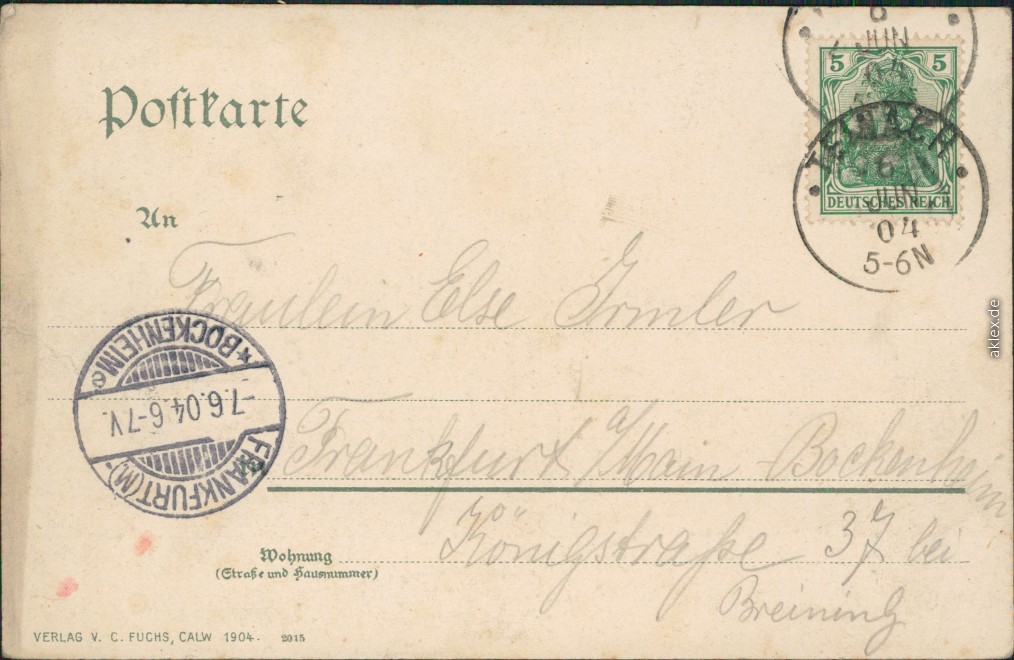 6
JUN
04
5 5
TEINACH
6
JUN
04
5-6N
DEUTSCHES REICH
Postkarte
An
Fräulein Else Irmler
*BOCKENHEIM*
-7.6.04.6-7V.
FRANKFURT (M)
Frankfurt a/Main-Bockenheim
Königstraße 37 bei
Breining
Wohnung
(Straße und Hausnummer)
VERLAG V. C. FUCHS, CALW 1904. 2015
aklex.de